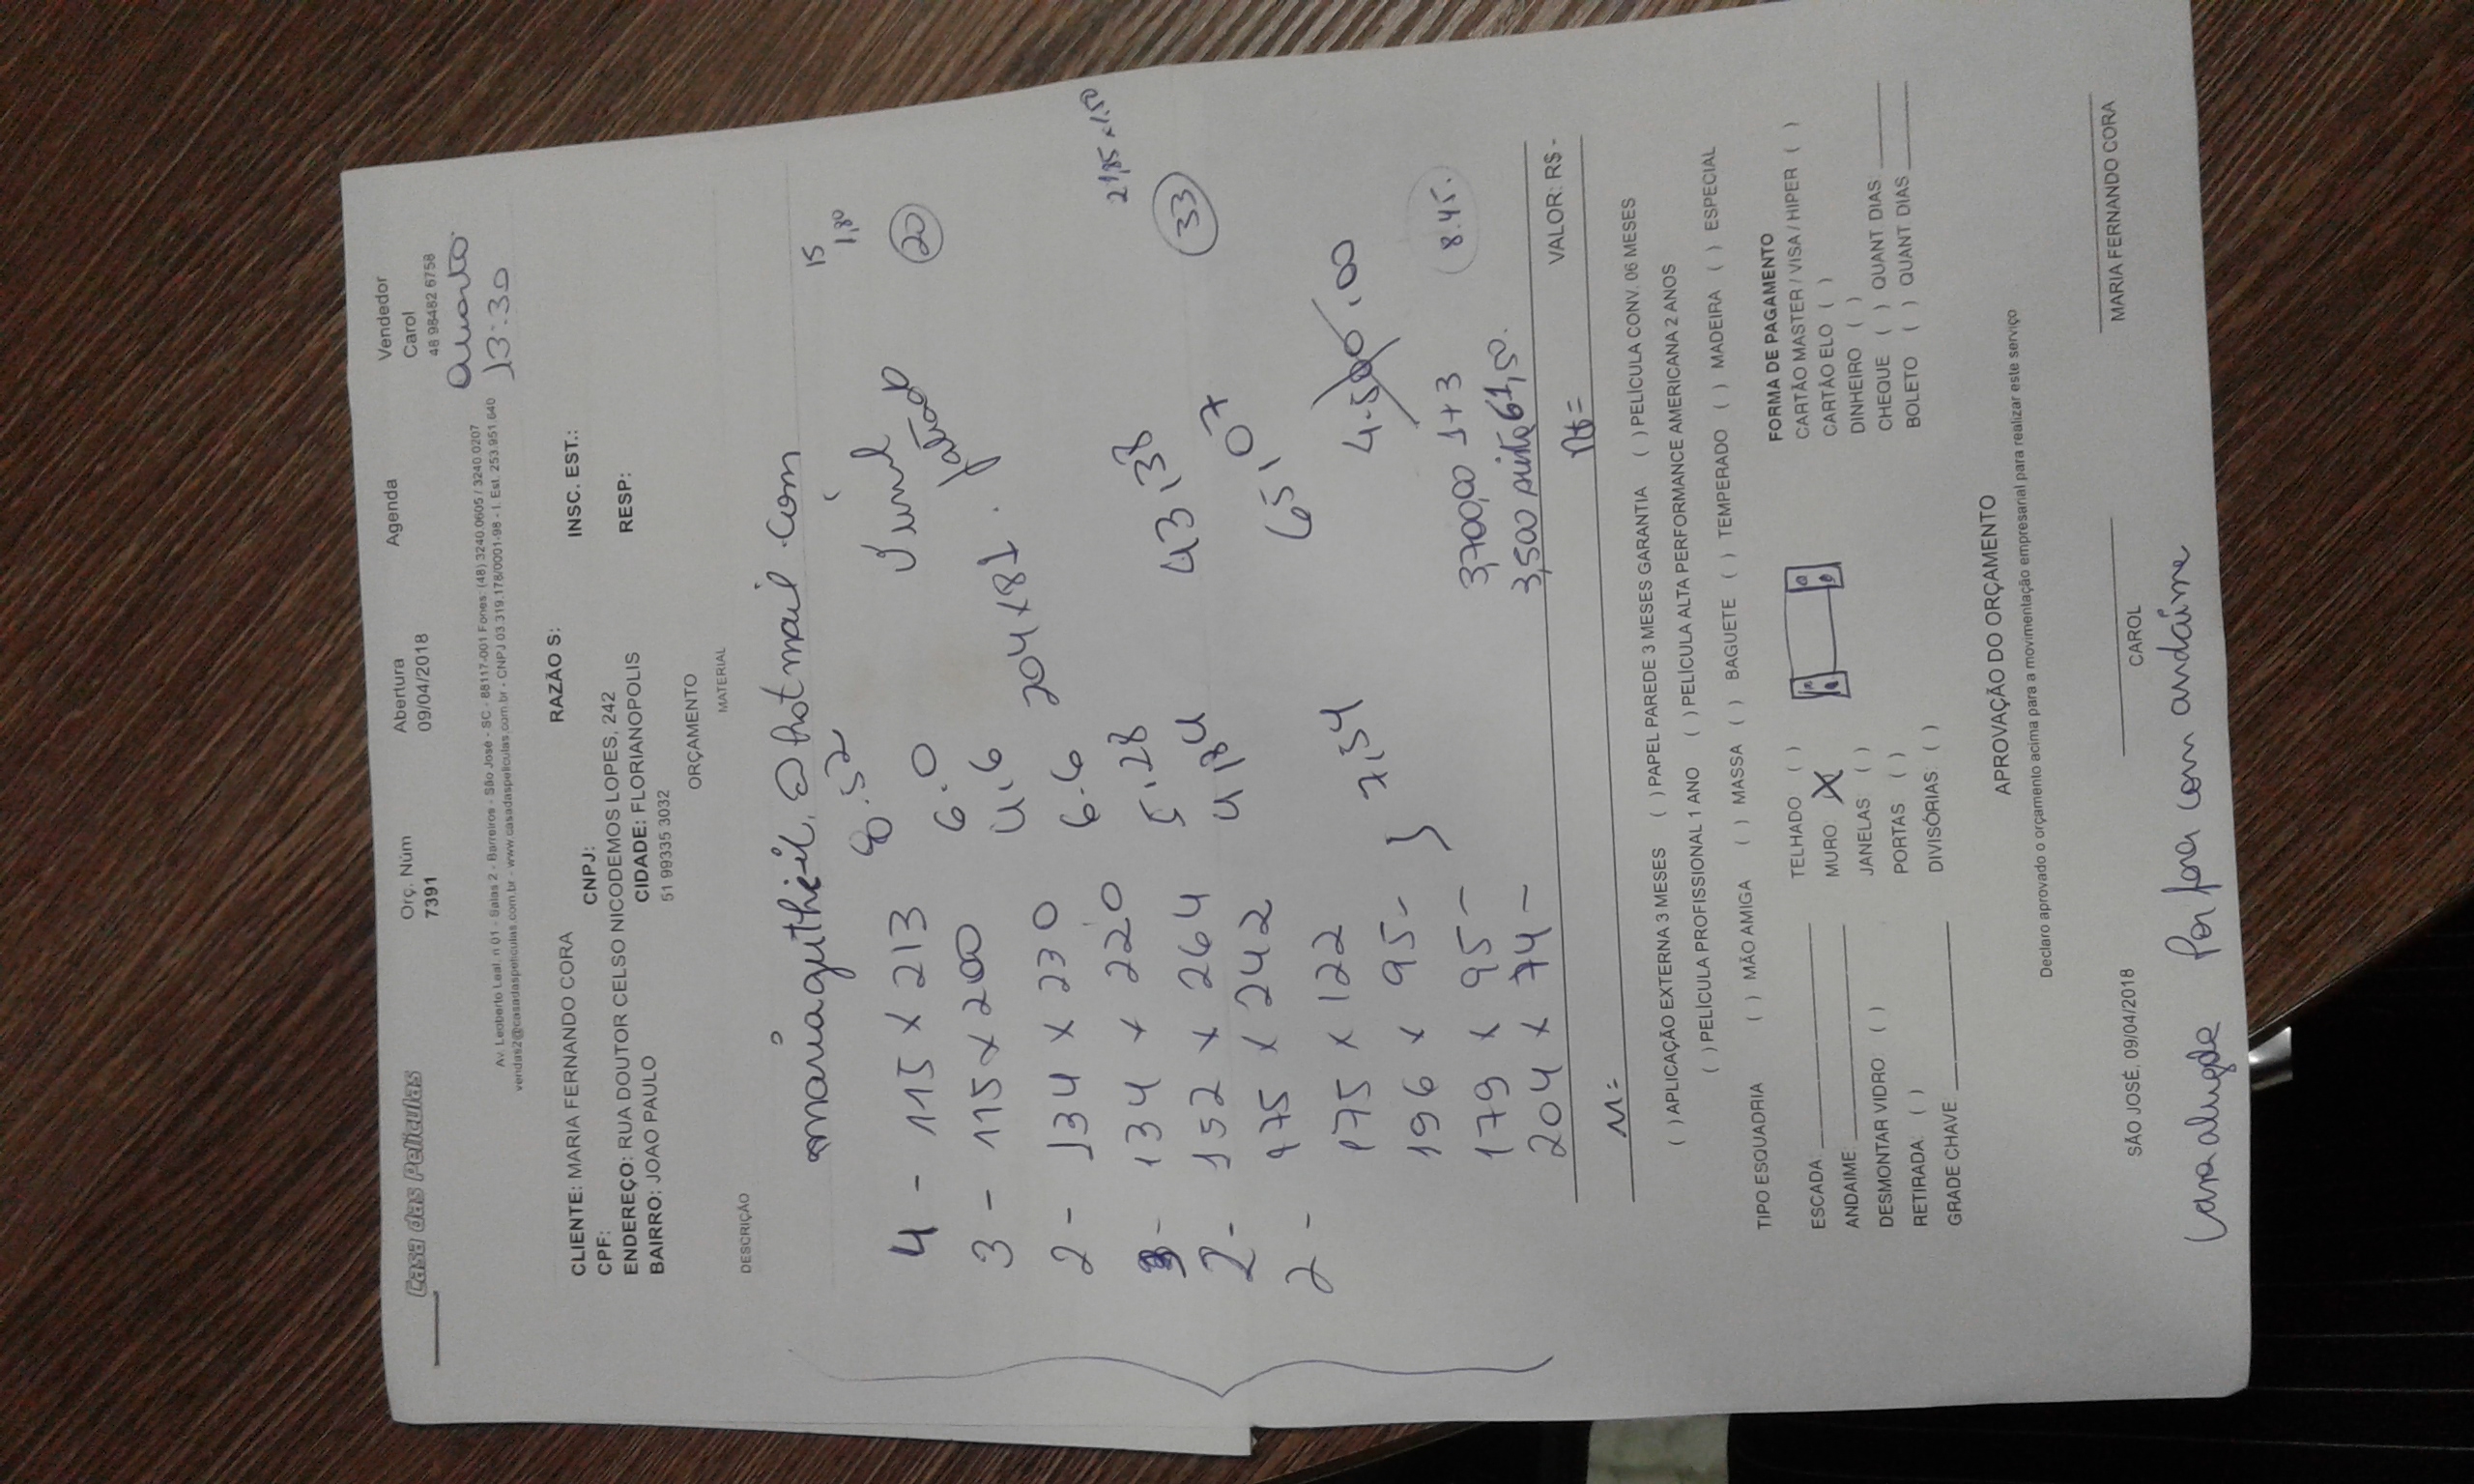 Casa das Películas
Orç. Núm Abertura Agenda Vendedor
7391 09/04/2018 Carol
48 98482 6758
Quarto
13:30
Av. Leoberto Leal, n 01 - Salas 2 - Barreiros - São José - SC - 88117-001 Fones: (48) 3240.0605 / 3240.0207
vendas2@casadaspeliculas.com.br - www.casadaspeliculas.com.br - CNPJ 03.319.178/0001-98 - I. Est. 253.951.640
CLIENTE: MARIA FERNANDO CORA RAZÃO S:
CPF: CNPJ: INSC. EST.:
ENDEREÇO: RUA DOUTOR CELSO NICODEMOS LOPES, 242
BAIRRO: JOAO PAULO CIDADE: FLORIANOPOLIS RESP:
51 99335 3032
ORÇAMENTO
DESCRIÇÃO MATERIAL
@hotmail.com
15
1,80
4 - 115 x 213 8.52 20
3 - 115 x 200 6.0
2 - 134 x 230 4,6 204 x 81.
3 - 134 x 220 6.6 21,85 x 1.50
2 - 152 x 264 5,28 43,38 33
2 - 175 x 242 4,84 65,07
175 x 122 7,54 4.500,00
196 x 95 -
179 x 95 - 3,700,00 1+3 8.45.
204 x 74 - 3,500 61,50.
VALOR: R$-
M= Pt=
( ) APLICAÇÃO EXTERNA 3 MESES ( ) PAPEL PAREDE 3 MESES GARANTIA ( ) PELÍCULA CONV. 06 MESES
( ) PELÍCULA PROFISSIONAL 1 ANO ( ) PELÍCULA ALTA PERFORMANCE AMERICANA 2 ANOS
TIPO ESQUADRIA ( ) MÃO AMIGA ( ) MASSA ( ) BAGUETE ( ) TEMPERADO ( ) MADEIRA ( ) ESPECIAL
ESCADA: TELHADO ( ) FORMA DE PAGAMENTO
ANDAIME: MURO: X CARTÃO MASTER / VISA / HIPER ( )
DESMONTAR VIDRO ( ) JANELAS ( ) CARTÃO ELO ( )
RETIRADA: ( ) PORTAS ( ) DINHEIRO ( )
GRADE CHAVE DIVISÓRIAS: ( ) CHEQUE ( ) QUANT DIAS
BOLETO ( ) QUANT DIAS
APROVAÇÃO DO ORÇAMENTO
Declaro aprovado o orçamento acima para a movimentação empresarial para realizar este serviço
SÃO JOSÉ, 09/04/2018 CAROL MARIA FERNANDO CORA
Por fora com andaime